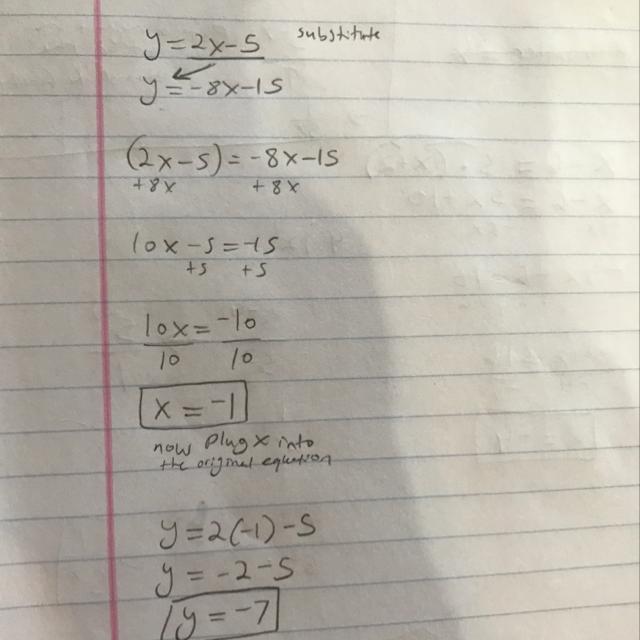 y = 2x - 5 substitute
y = -8x - 15
(2x - 5) = -8x - 15
+8x +8x
10x - 5 = -15
+5 +5
10x = -10
10 10
x = -1
now plug x into
the original equation
y = 2(-1) - 5
y = -2 - 5
y = -7